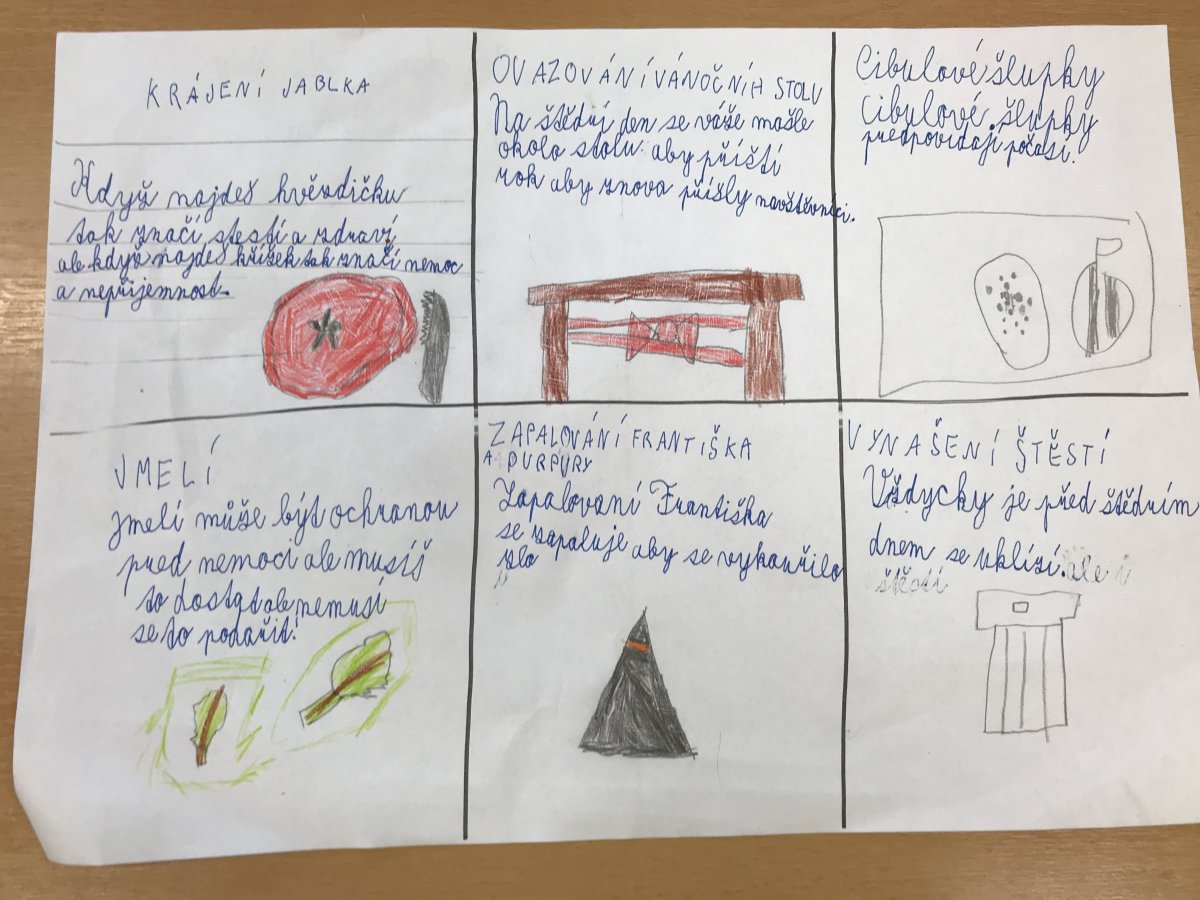 KRÁJENÍ JABLKA
Když najdeš hvězdičku
tak značí stestí a zdraví
ale když najdeš křížek tak značí nemoc
a nepřijemnost.
OVAZOVÁNÍ VÁNOČNÍH STOLU
Na štědrí den se váže mašle
okolo stolu aby příští
rok aby znova přišly navštěvníci.
Cibulové šlupky
Cibulové šlupky
předpovídají počasí.
JMELÍ
jmelí může být ochranou
pred nemocí ale musíš
to dostat ale nemusí
se to podařit!
ZAPALOVÁNÍ FRANTIŠKA
A PURPURY
Zapalovaní Františka
se zapaluje aby se vykouřilo
zlo
VYNAŠENÍ ŠTĚSTÍ
Vždycky je před štědrím
dnem se uklízí. ale i
štěstí